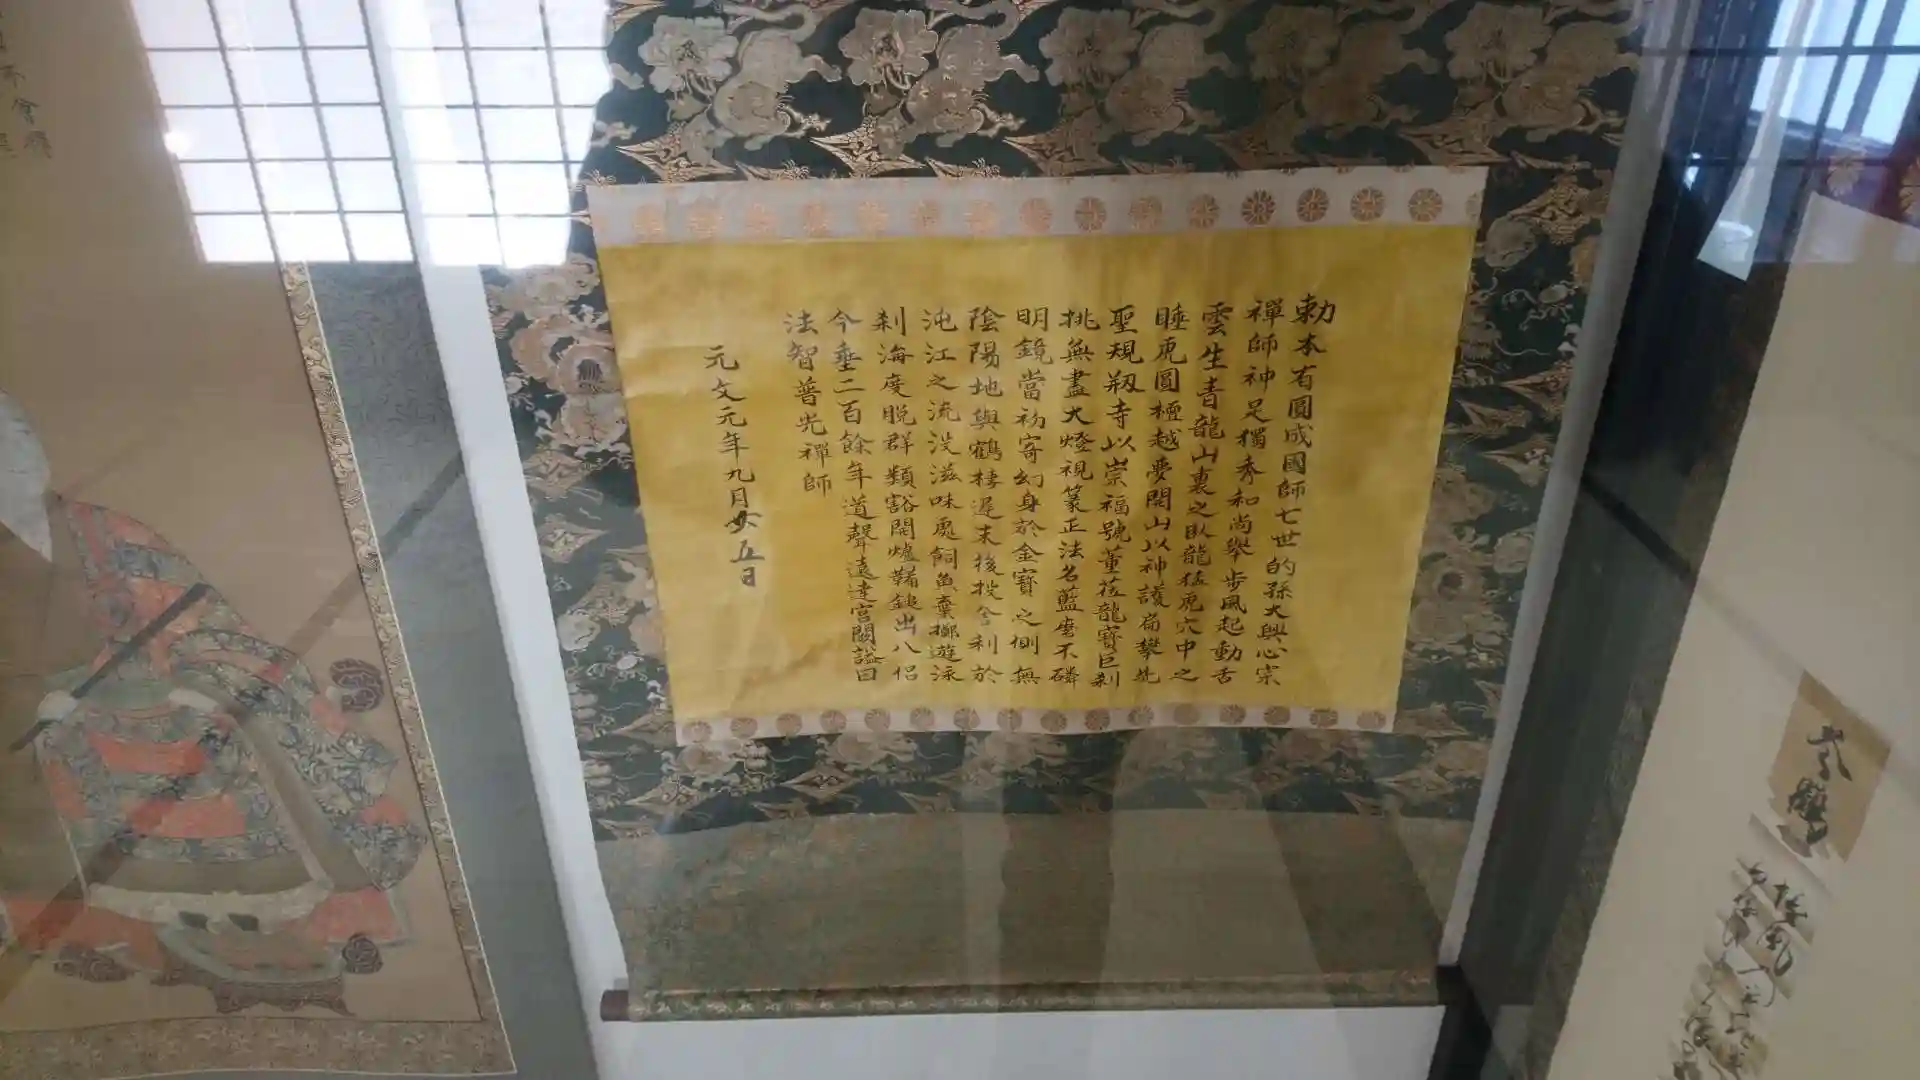 勅本有圓成國師七世的孫大興心宗
禪師神足獨秀和尚舉步風起動舌
雲生青龍山裏之臥龍猛虎穴中之
睡虎圓極越夢開山以神護扁攀先
聖規剏寺以崇福號董莅龍寶巨刹
挑無盡大燈視篆正法名藍麼不磷
明鏡當初寄幻身於金寶之側無
陰陽地與鶴棲遲末後投舍利於
沌江之流没滋味處飼魚棄擲遊泳
刹海度脱群類豁開爐鞴鎚出八侶
今垂二百餘年道聲遠達宮闕謚曰
法智普光禪師
元文元年九月廿五日